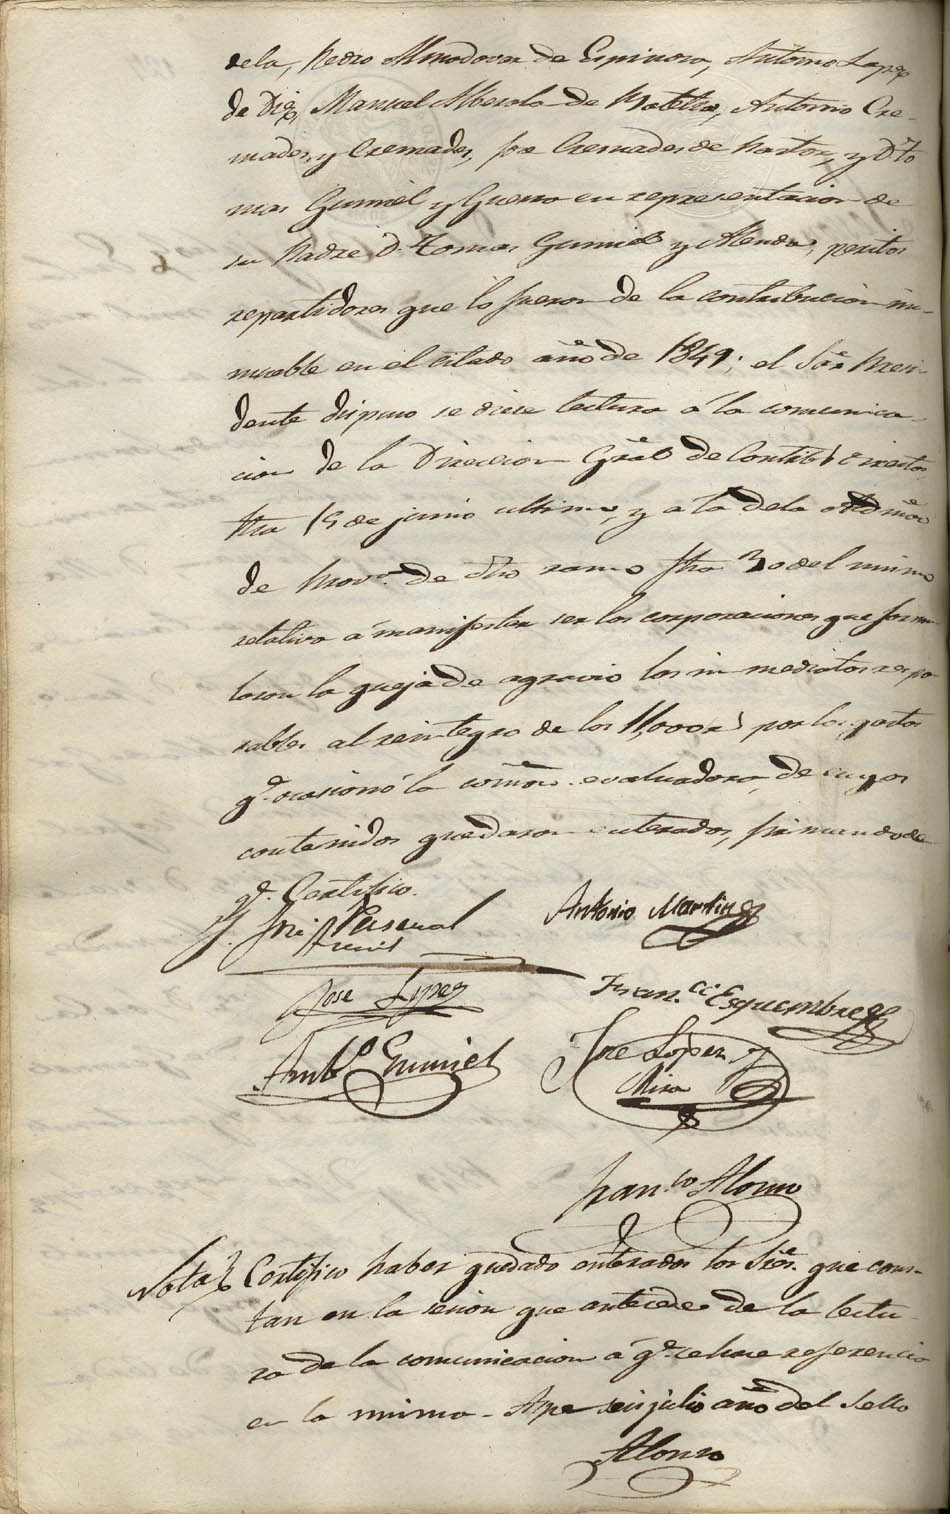 dela, Pedro Almodovar de Espinosa, Antonio Lopez
de Diego, Manuel Alberola de Botella, Antonio Cre-
mades, y Cremades, Cremades de Pastor, y Dn. To
mas Gumiel y Guerra en representacion de
su Padre D. Tomas Gumiel y Alenda, peritos
repartidores que lo fueron de la contribucion in-
mueble en el citado año de 1849; el Sor. Presi-
dente dispuso se diese lectura á la comunica-
cion de la Direccion Gral de Contribs. Directas,
fha 15 de junio ultimo, y a la dela Admon
de Prova. de dho ramo fha 30 del mismo
relativa á manifestar ser las corporaciones que formu-
laron la queja de agravio los inmediatos respon-
sables al reintegro de los 11,000 r.s por los gastos
q.e ocasionó la comon. evaluadora, de cuyos
contenidos quedaron enterados, firmando de
q.e Certifico.
José Pascual Antonio Martinez
José Lopez Fran.co Esquembre
Amb.o Gumiel José Lopez y
Mira
Fran.co Alonso
Nota Certifico haber quedado enterados los Sres. que cons-
tan en la sesion que antecede de la lectu-
ra de la comunicacion á q.e se hace referencia
en la misma - Aspe seis julio año del Sello
Alonso